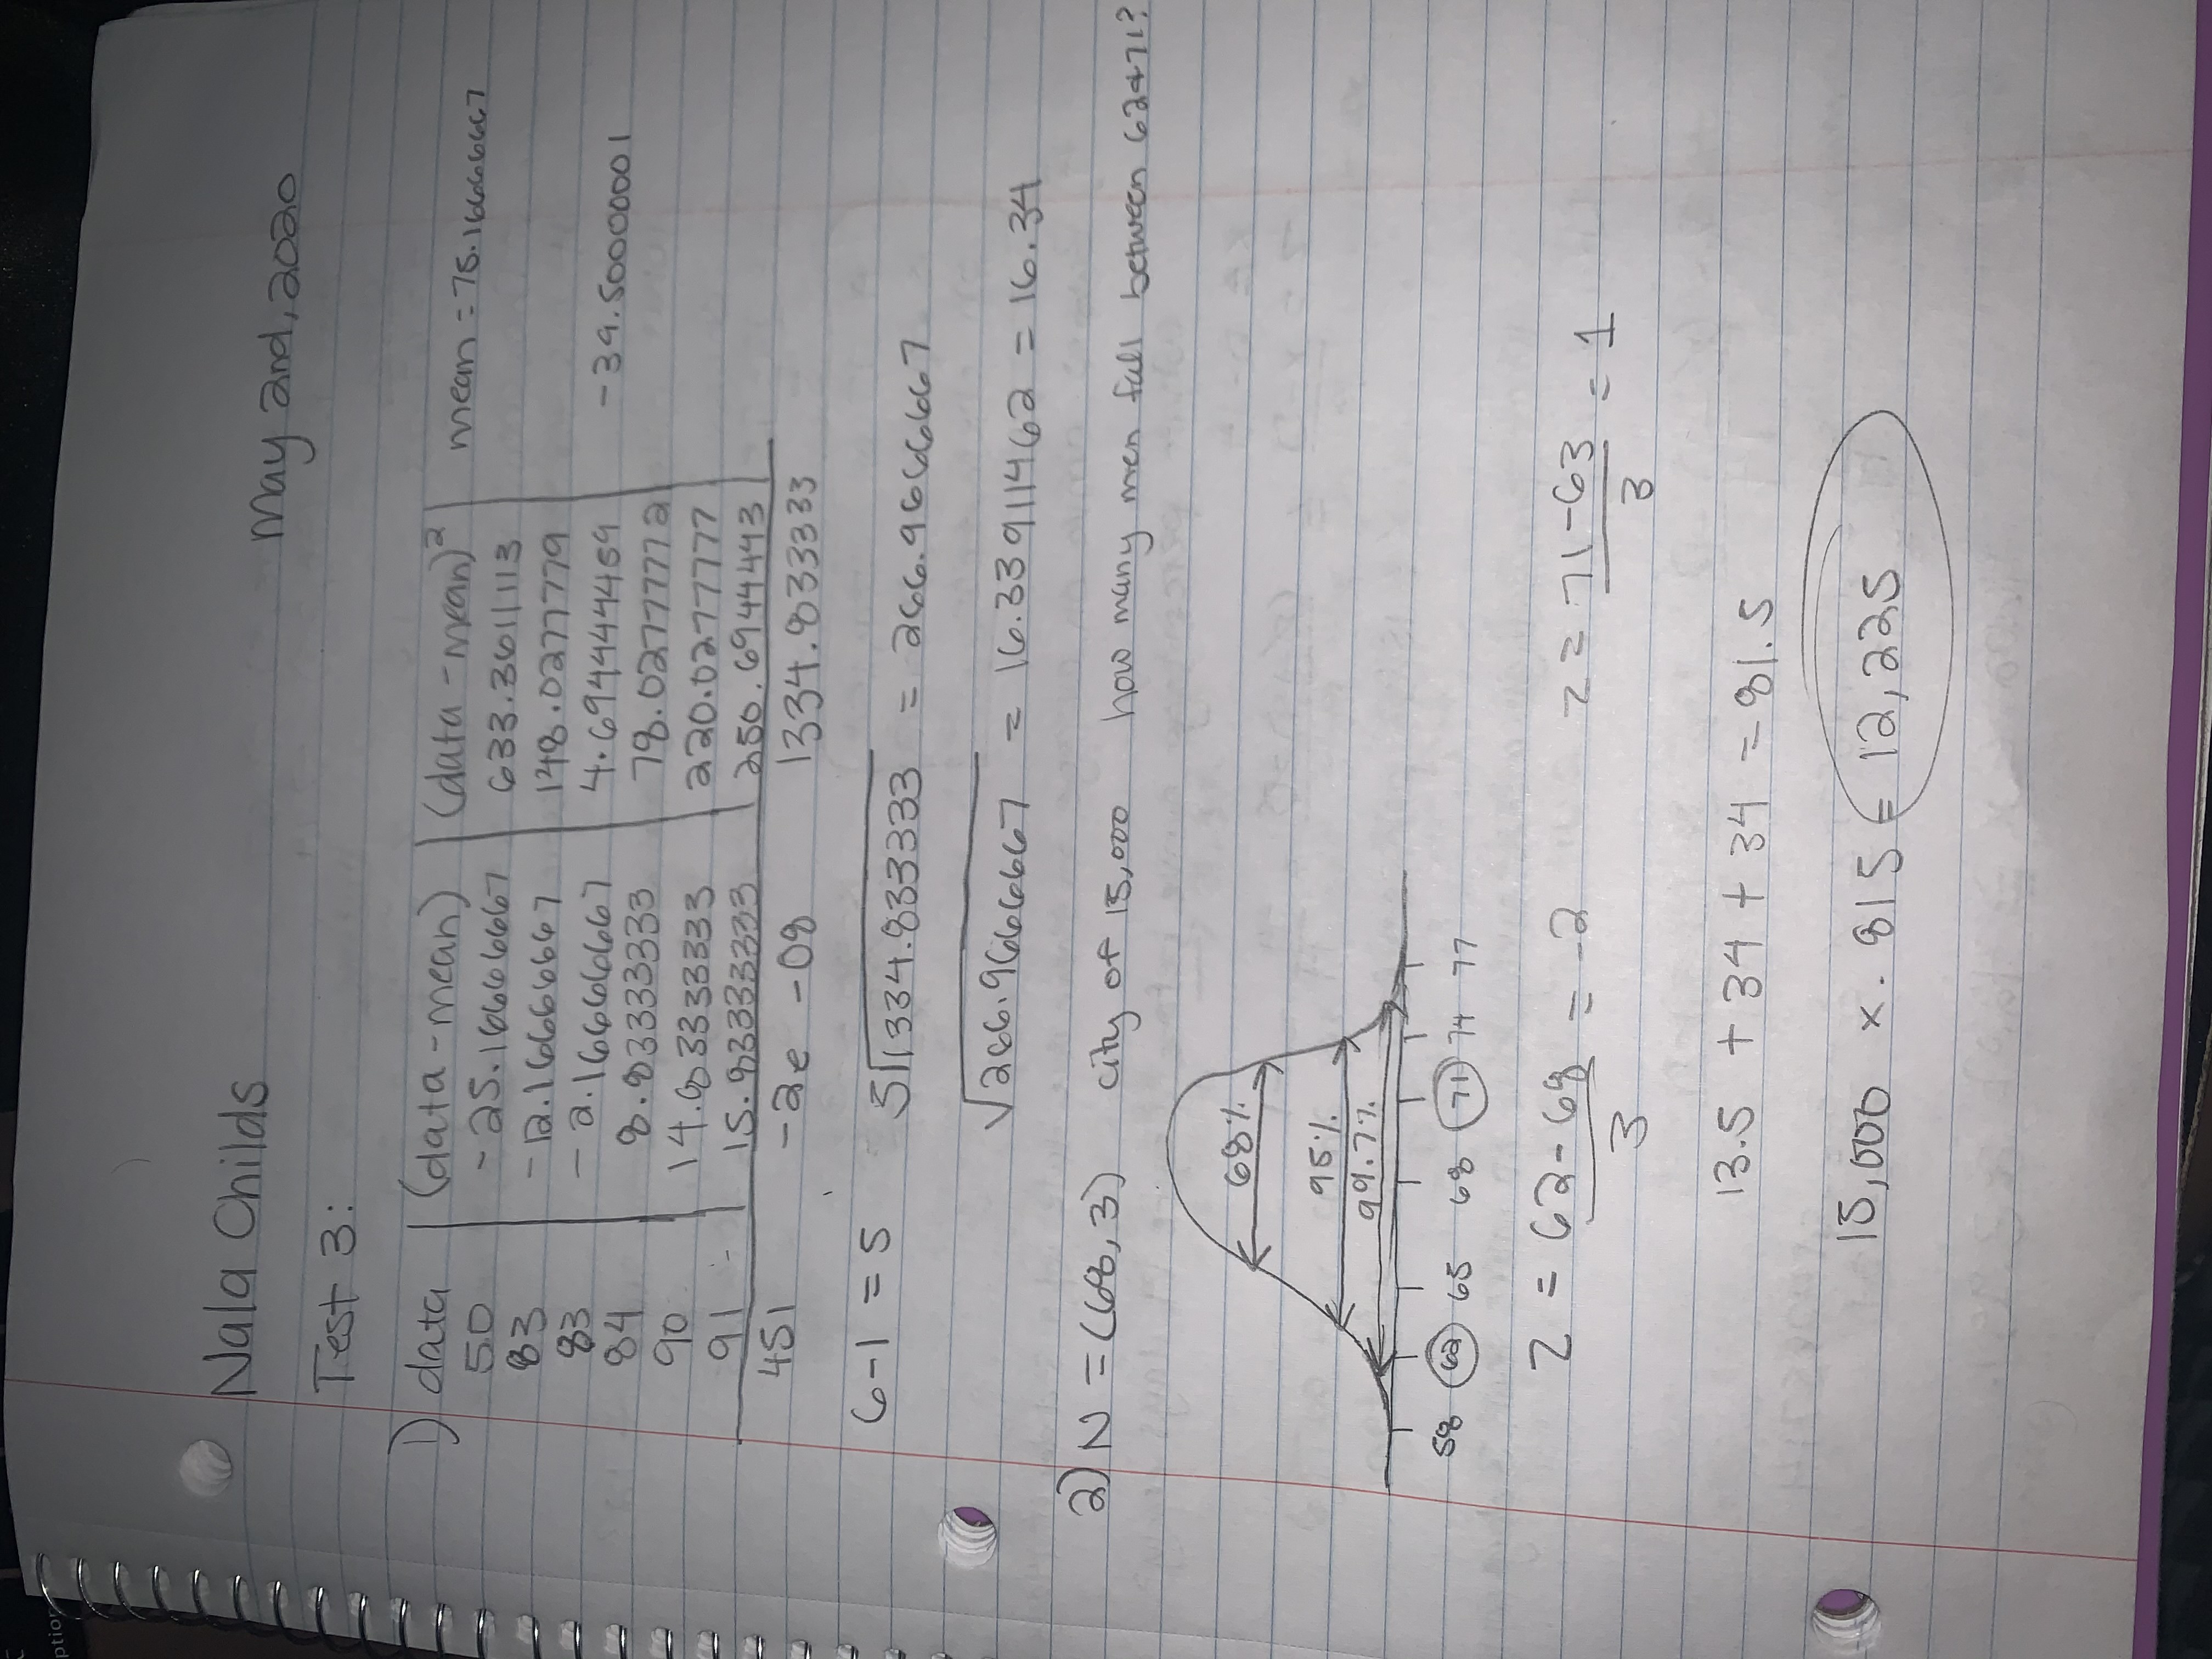 Nala Childs May 2nd, 2020
Test 3:
1) data (data-mean) (data-mean)² mean = 75.16666667
50 -25.16666667 633.3611113
83 -12.1666667 148.0277779
83 -2.166666667 4.694444459 -39.50000001
84 8.833333333 78.02777772
90 14.83333333 220.0277777
91 15.83333333 250.6944443
451 -2e-08 1334.833333
6-1=5 5√1334.833333 = 266.9666667
√266.9666667 = 16.33911462 = 16.34
2) N = (68,3) city of 15,000 how many men fall between 62+71?
68%
95%
99.7%
58 62 65 68 71 74 77
Z = 62-68 / 3 = -2 Z = 71-63 / 3 = 1
13.5 + 34 + 34 = 81.5
15,000 x .815 = 12,225
ption